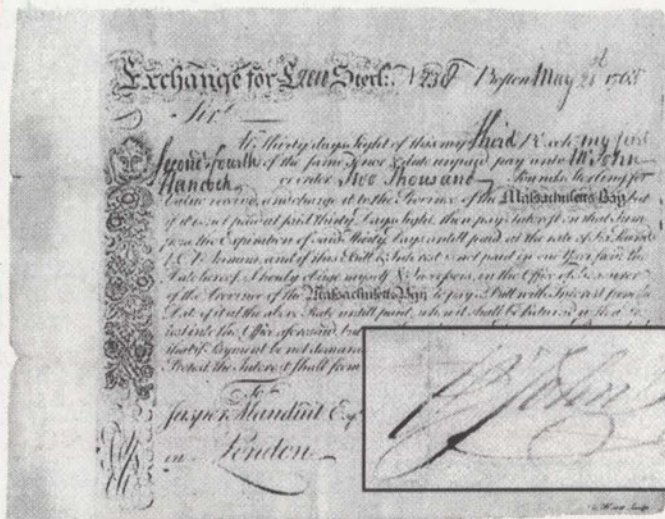 Exchange for £2000 Sterl: N 238 Boston May 21st 1765
Sir
At thirty days sight of this my Third Exch: my first
Second fourth of the same Tenor & date unpaid pay unto Mr John
Hancock or order Two Thousand Pounds Sterling for
Value receiv'd and charge it to the Province of the Massachusetts Bay but
if it is not paid at said thirty days sight then pay Interest on that Sum
from the Expiration of said thirty Days untill paid at the rate of Six
and if this Bill & Interest is not paid in one Year from the
Date hereof I hereby oblige myself & Successors in the Office of Treasurer
of the Province of the Massachusetts Bay to pay Bill with Interest from
Date of it at the above Rate untill paid, when it shall be
into the Office aforesaid, but
that if Payment be not deman
Protest the Interest shall from
To
Jasper Manduit Esq
in London
John